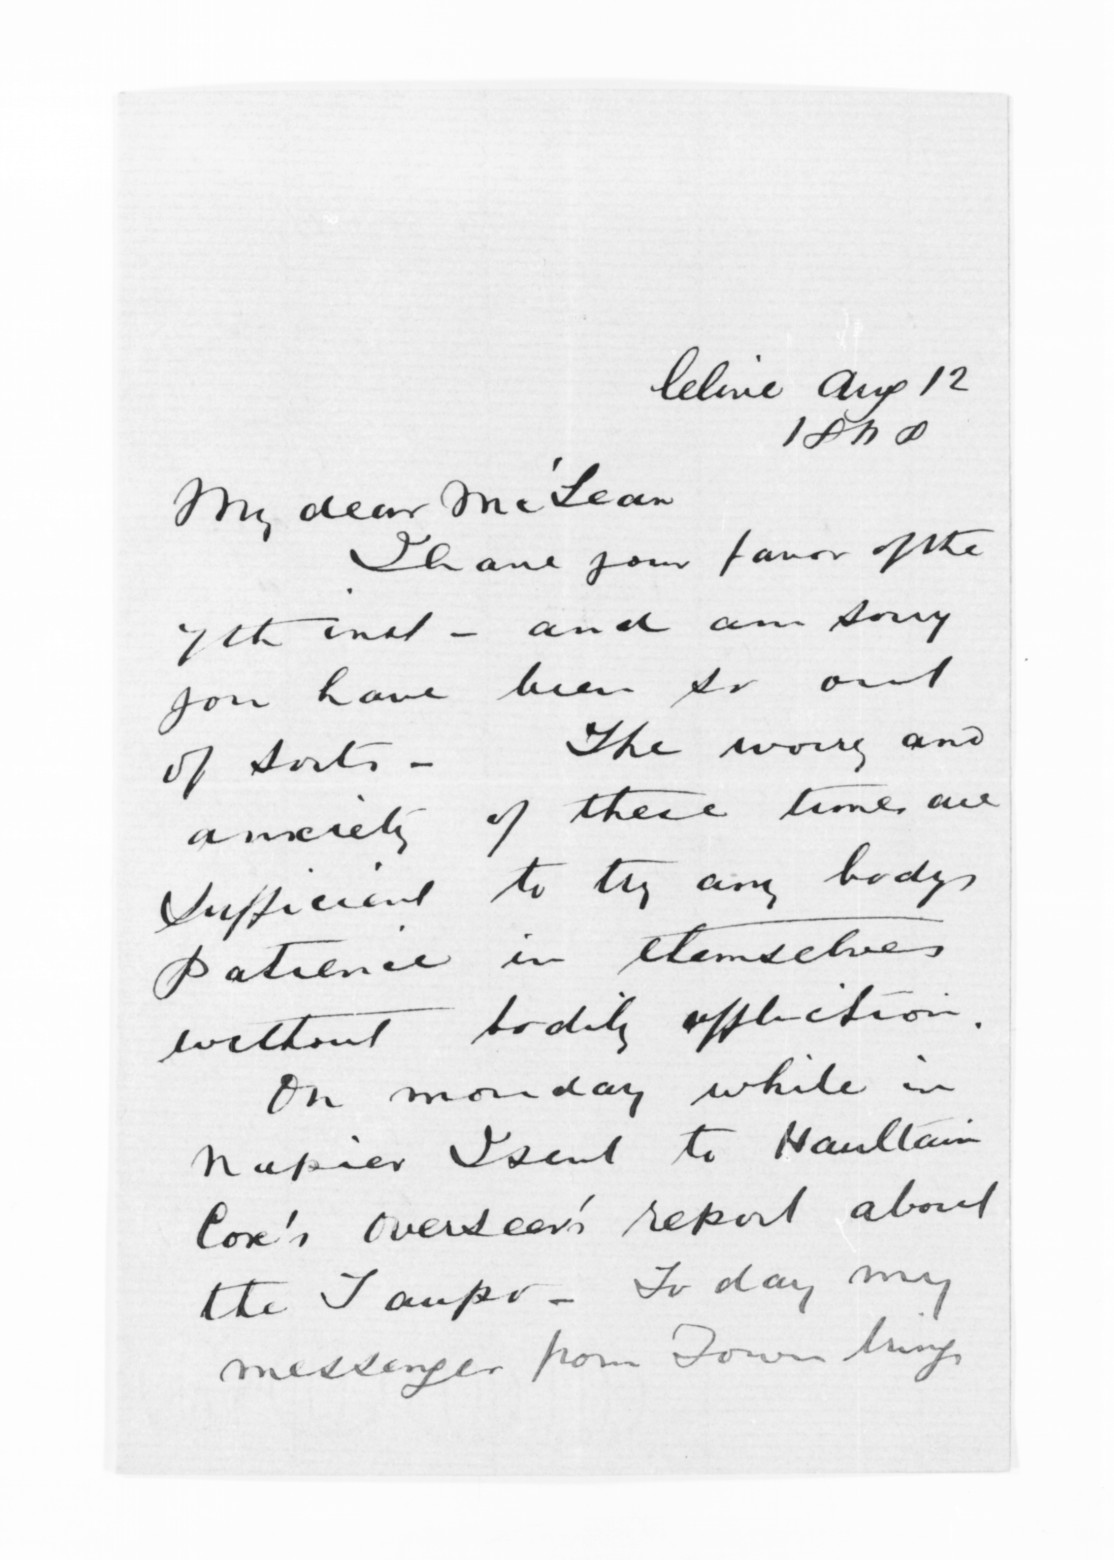 Clive Aug 12
My dear McLean
I have your favor of the
7th inst - and am sorry
you have been so out
of sorts - The worry and
anxiety of these times are
sufficient to try any bodys
patience in themselves
without bodily affliction.
On monday while in
Napier I sent to Haultain
Cox's overseer's report about
the Taupo - To day my
messenger from Town brings